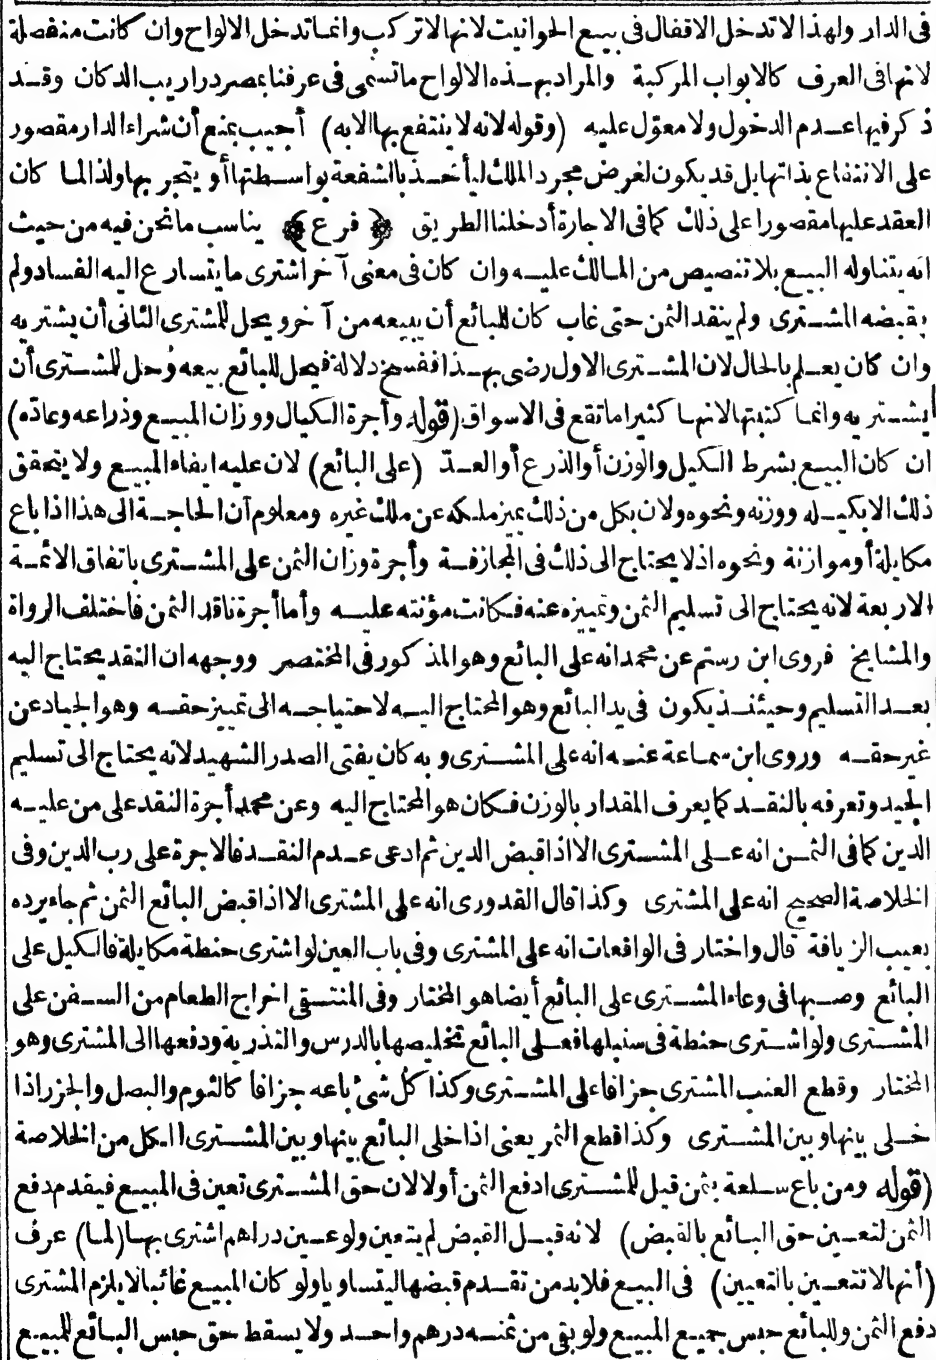 فى الدار ولهذا لا تدخل الاقفال فى بيع الحوانيت لانها لا تركب وانما تدخل الالواح وان كانت منفصلة
لانها فى العرف كالابواب المركبة والمراد بهذه الالواح ما تسمى فى عرفنا بمصر دراريب الدكان وقد
ذكر فيها عدم الدخول ولا معوّل عليه (وقوله لانه لا ينتفع بها الا به) أجيب بمنع أن شراء الدار مقصور
على الانتفاع بذاتها بل قد يكون لغرض مجرد الملك ليأخذ بالشفعة بواسطتها أو يتجر بها ولذا لما كان
العقد عليها مقصورا على ذلك كما فى الاجارة أدخلنا الطريق ﴿فرع﴾ يناسب ما نحن فيه من حيث
انه يتناوله البيع بلا تنصيص من المالك عليه وان كان فى معنى آخر اشترى ما يتسارع اليه الفساد ولم
يقبضه المشترى ولم ينقد الثمن حتى غاب كان للبائع أن يبيعه من آخر ويحل للمشترى الثانى أن يشتريه
وان كان يعلم بالحال لان المشترى الاول رضى بهذا فقسخ دلالة فيحل للبائع بيعه وحل للمشترى أن
يشتريه وانما كتبتها لانها كثيرا ما تقع فى الاسواق (قوله وأجرة الكيال ووزان المبيع وذراعه وعادّه)
ان كان البيع بشرط الكيل والوزن أو الذرع أو العدّ (على البائع) لان عليه ايفاء المبيع ولا يتحقق
ذلك الا بكيله ووزنه ونحوه ولان بكل من ذلك يميز ملكه عن ملك غيره ومعلوم أن الحاجة الى هذا اذا باع
مكايلة أو موازنة ونحوه اذ لا يحتاج الى ذلك فى المجازفة وأجرة وزان الثمن على المشترى باتفاق الائمة
الاربعة لانه يحتاج الى تسليم الثمن وتمييزه عنه فكانت مؤنته عليه وأما أجرة ناقد الثمن فاختلف الرواة
والمشايخ فروى ابن رستم عن محمد انه على البائع وهو المذكور فى المختصر ووجهه ان النقد يحتاج اليه
بعد التسليم وحينئذ يكون فى يد البائع وهو المحتاج اليه لاحتياجه الى تمييز حقه وهو الجياد عن
غير حقه وروى ابن سماعة عنه انه على المشترى وبه كان يفتى الصدر الشهيد لانه يحتاج الى تسليم
الجيد وتعرفه بالنقد كما يعرف المقدار بالوزن فكان هو المحتاج اليه وعن محمد أجرة النقد على من عليه
الدين كما فى الثمن انه على المشترى الا اذا قبض الدين ثم ادعى عدم النقد فالاجرة على رب الدين وفى
الخلاصة الصحيح انه على المشترى وكذا قال القدورى انه على المشترى الا اذا قبض البائع الثمن ثم جاء يرده
بعيب الزيافة قال واختار فى الواقعات انه على المشترى وفى باب العين لو اشترى حنطة مكايلة فالكيل على
البائع وصبها فى وعاء المشترى على البائع أيضا هو المختار وفى المنتقى اخراج الطعام من السفن على
المشترى ولو اشترى حنطة فى سنبلها فعلى البائع تخليصها بالدرس والتذرية ودفعها الى المشترى وهو
المختار وقطع العنب المشترى جزافا على المشترى وكذا كل شئ باعه جزافا كالثوم والبصل والجزر اذا
خلى بينها وبين المشترى وكذا قطع الثمر يعنى اذا خلى البائع بينها وبين المشترى الكل من الخلاصة
(قوله ومن باع سلعة بثمن قيل للمشترى ادفع الثمن أولا لان حق المشترى تعين فى المبيع فيقدم دفع
الثمن لتعين حق البائع بالقبض) لانه قبل القبض لم يتعين ولو عين دراهم اشترى بها (لما) عرف
(أنها لا تتعين بالتعيين) فى البيع فلا بد من تقدم قبضها ليتساويا ولو كان المبيع غائبا لا يلزم المشترى
دفع الثمن وللبائع حبس جميع المبيع ولو بقى من ثمنه درهم واحد ولا يسقط حق حبس البائع للمبيع